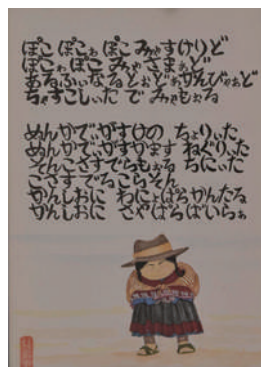 ぽこ ぽこぉ ぽこ みゃすけりど
ぽこぉ ぽこ みゃ さまぁど
あるふぃなるどぉどぁかんびゃぁど
ちゃすこしぃた で みゃもぉる
めんかでぃがすけの ちょりぃた
めんかでぃがすかます ねぐりぃた
そんこさすでらもぉる ちにぃた
こさすでるこらそん
かんしおに わにょぱらかんたる
かんしおに さやぱらばいらぁ